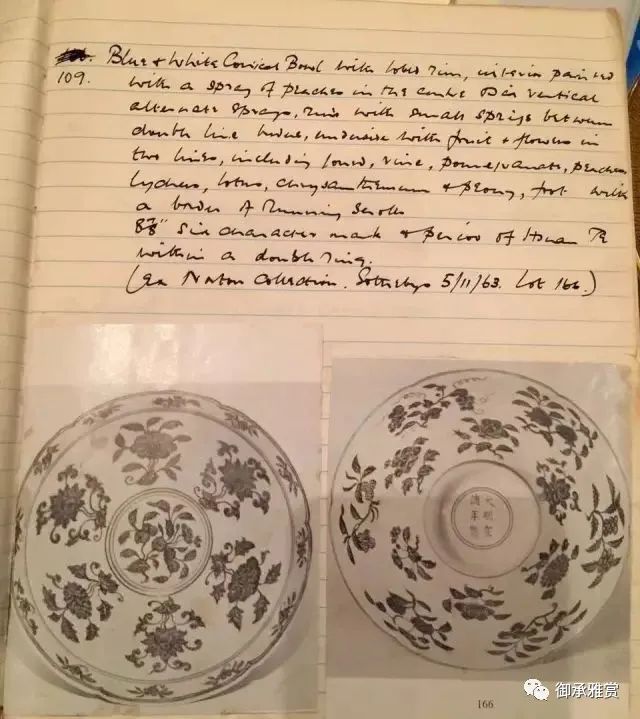 109. Blue & White Conical Bowl with lobed rim, interior painted
with a spray of peaches in the centre & six vertical
alternate sprays, rim with small sprigs between
double line bands, underside with fruit & flowers in
two lines, including vine, pomegranate, peaches
lychees, lotus, chrysanthemum & peony, foot with
a border of Running Scrolls
8⅞" Six character mark & period of Hsuan Te
within a double ring.
(Ex Norton Collection. Sothebys 5/11/63. Lot 166.)
大明宣
德年製
166
御承雅赏